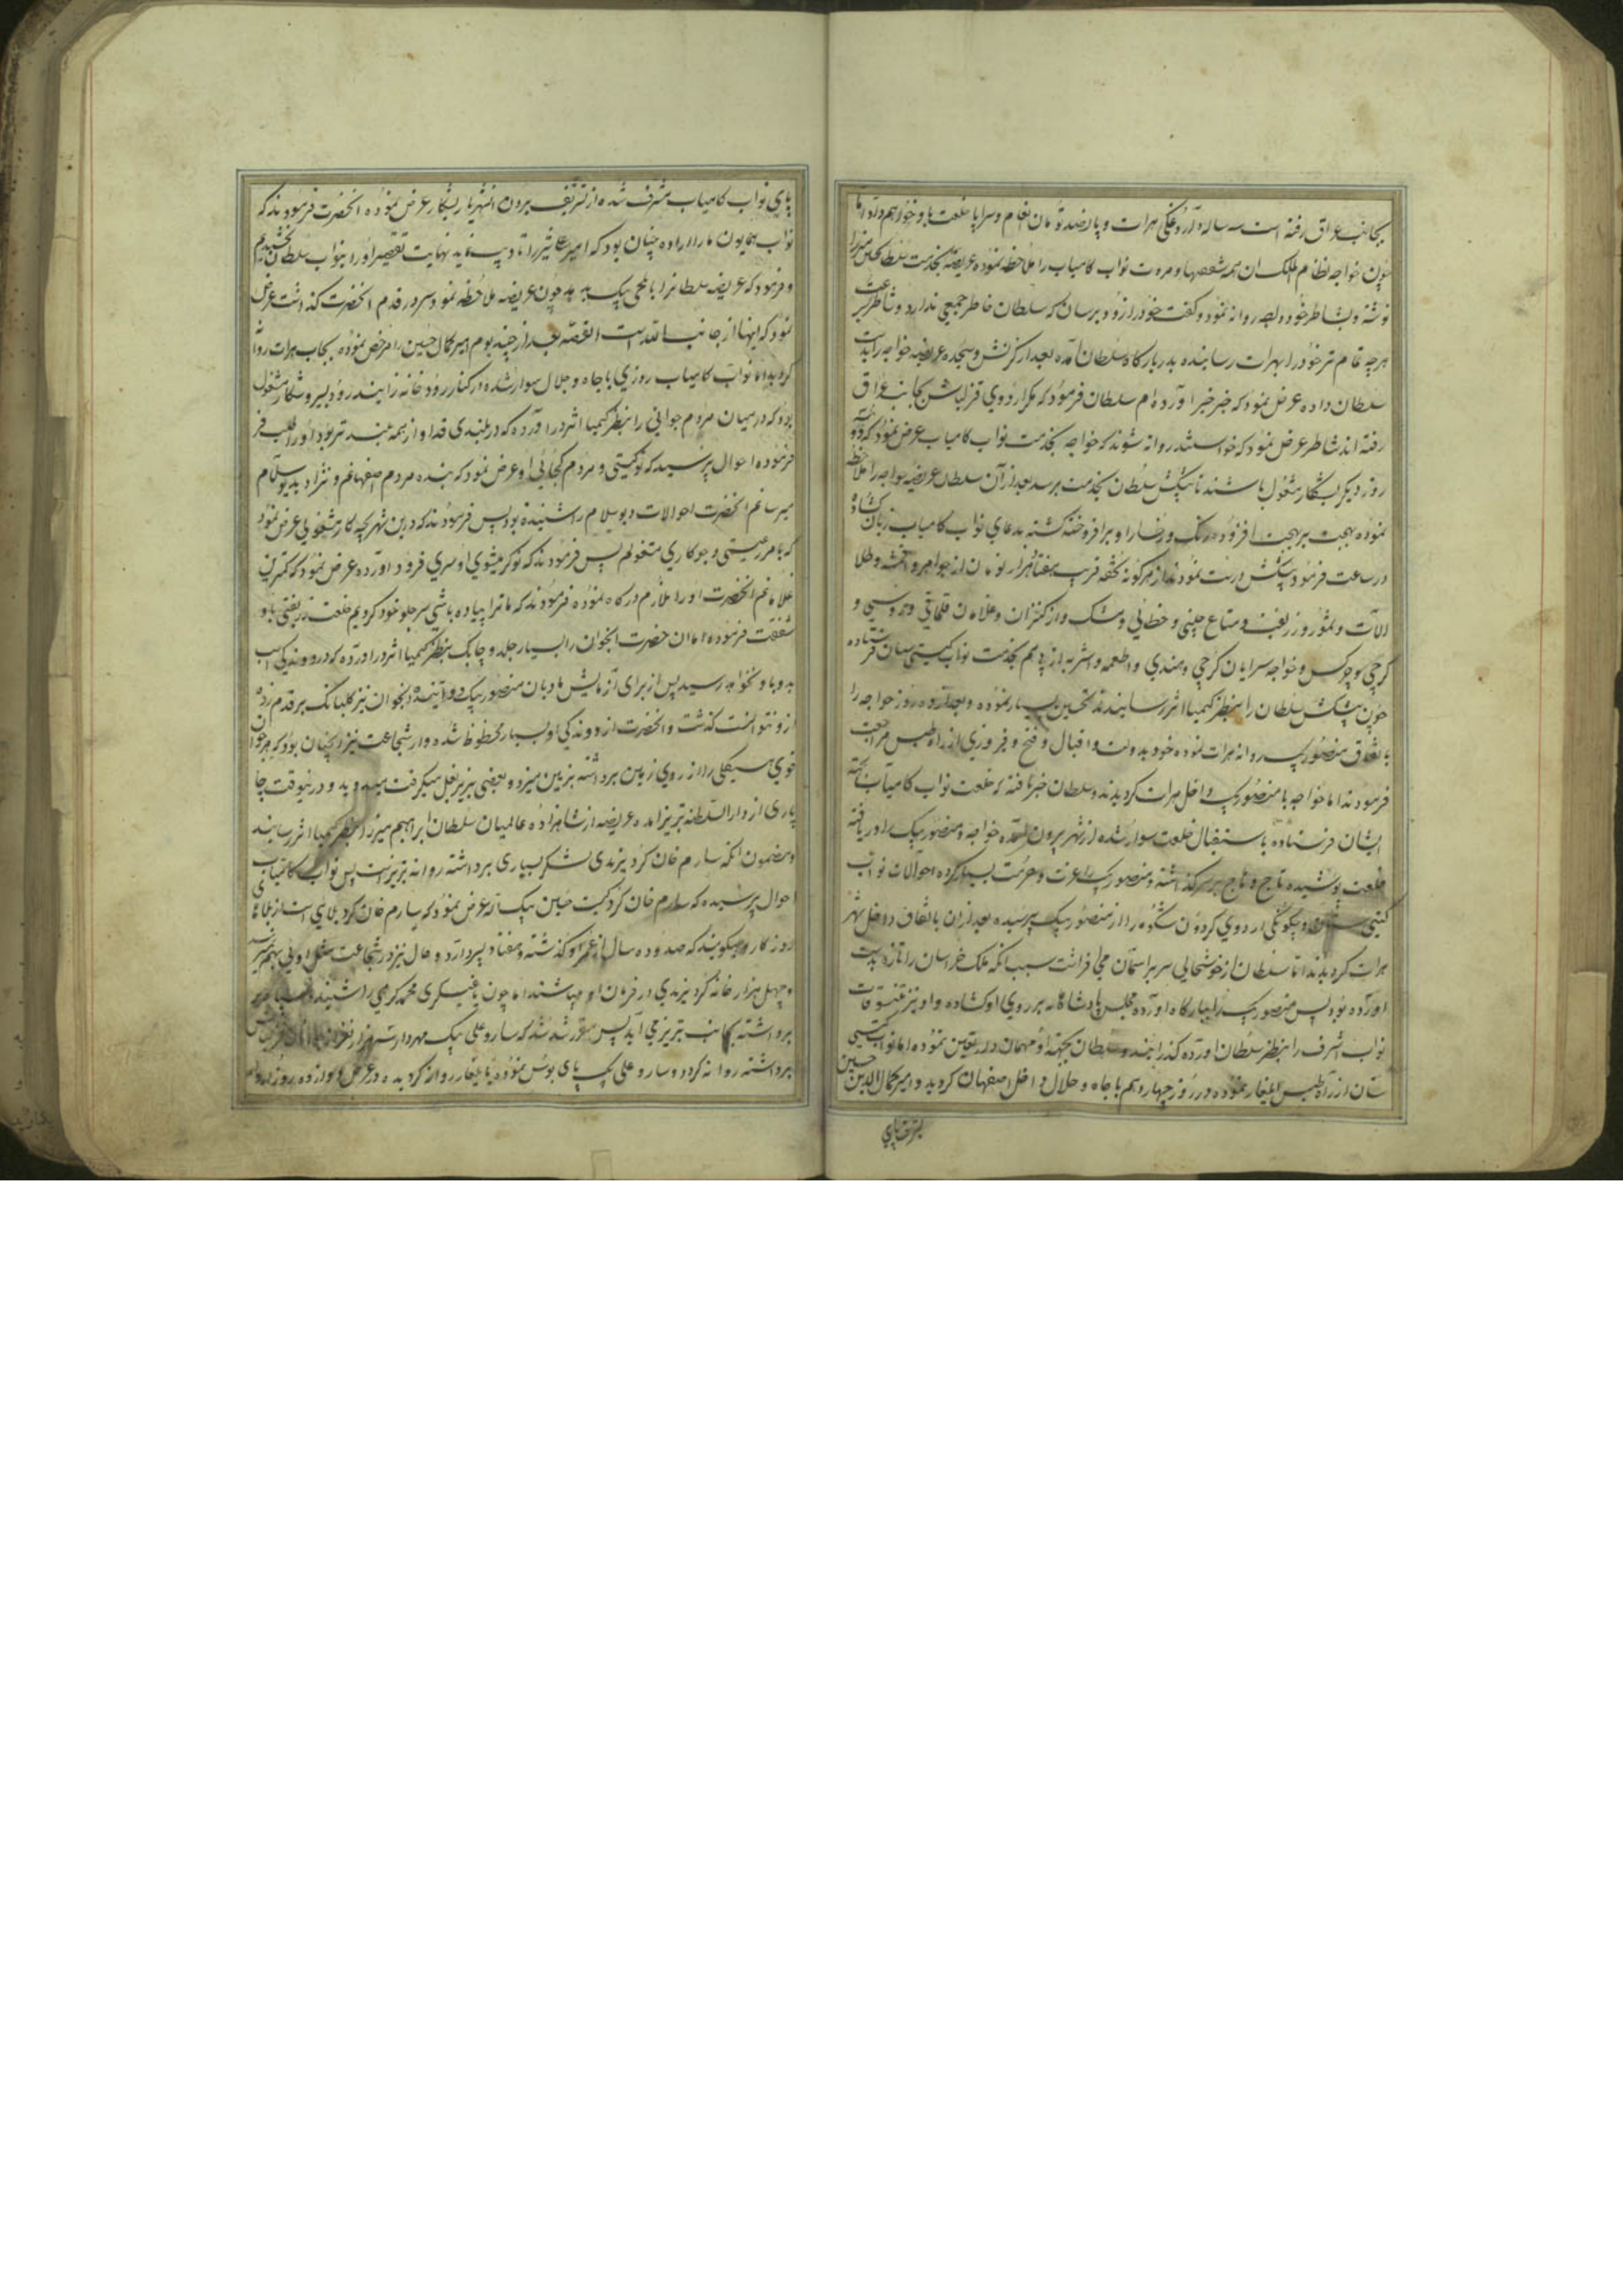 بجانب عراق رفته است سه ساله داروغگی هرات و پانصد تومان انعام و سراپا خلعت باو خواهم داد اما
چون خواجه نظام الملک ان همه شفقتها و مروت نواب کامیاب را ملاحظه نموده عریضه بخدمت سلطان حسین میرزا
نوشته و بشاطر خود داده روانه نمود و گفت خود را زود برسان که سلطان خاطر جمعی ندارد و شاطر بسرعت
هرچه تمام تر خود را بهرات رسانیده بدربارگاه سلطان آمده بعد از کرنش و سجده عریضه خواجه را بدست
سلطان داده عرض نمود که خبر خیر آورده‌ام سلطان فرمود که مگر اردوی قزلباش بجانب عراق
رفته اند شاطر عرض نمود که خواستند روانه شوند که خواجه بخدمت نواب کامیاب عرض نمود که ده
روز دیگر بشکار مشغول باشند تا پیشکش سلطان بخدمت برسد بعد از آن سلطان عریضه خواجه را ملاحظه
نموده بهجت بر بهجت افزوده رنگ رخسار او برافروخته گشته بدعای نواب کامیاب زبان گشاده
در ساعت فرمود پیشکش درست نمودند از هرگونه تحفه قریب بهفتاد هزار تومان از جواهر و اقمشه و طلا
آلات و سمور و زربفت و متاع چینی و خطائی و مشک و از کنیزان و غلامان قلماقی و روسی و
گرجی و چرکس و خواجه سرایان گرجی و هندی و اطعمه و اشربه از پی هم بخدمت نواب گیتی ستان فرستاده
چون پیشکش سلطان را بنظر کیمیا اثر رسانیدند تحسین بسیار نموده و بعد از ده روز خواجه را
باتفاق منصور بیک روانه هرات نموده خود بدولت و اقبال و فتح و فیروزی از راه طبس مراجعت
فرمودند اما خواجه با منصور بیک داخل هرات گردیدند و سلطان خبر یافته که خلعت نواب کامیاب بجهة
ایشان فرستاده باستقبال خلعت سوار شده از شهر بیرون آمده خواجه و منصور بیک را دریافته
خلعت پوشیده تاج و هاج بر سر گذاشته و منصور بیک را عزت و حرمت بسیار کرده احوالات نواب
گیتی ستان و چگونگی اردوی گردون شکوه را از منصور بیک پرسیده بعد از ان باتفاق داخل شهر
هرات گردیدند اما سلطان از خوشحالی سر بر آسمان می افراشت سبب آنکه ملک خراسان را تازه بدست
اورده بود پس منصور بیک را ببارگاه اورده مجلس پادشاهانه بر روی او گشاده و او نیز تنسوقات
نواب اشرف را بنظر سلطان اورده گذرانیدند و سلطان بجهة او مهمان دار تعیین نموده اما نواب گیتی
ستان از راه طبس ایلغار نموده در روز چهاردهم باجاه و جلال داخل اصفهان گردید و امیر کمال الدین حسین
بشرف پای
پای نواب کامیاب مشرف شده از تشریف بردن انشهریار بشکار عرض نموده انحضرت فرمودند که
نواب همایون ما را اراده چنان بود که امیر علیشیر را تادیب نماید نهایت تقصیر او را بنواب سلطان بخشیدیم
و فرمود که عریضه سلطانرا بایلچی بیک بدهد چون عریضه ملاحظه نمود سر در قدم انحضرت گذاشت عرض
نمود که اینها از جانب الله است القصه بعد از چند یوم امیر کمال حسین را مرخص نموده بجانب هرات روانه
گردید اما نواب کامیاب روزی باجاه و جلال سوار شده از کنار رودخانه زاینده رود بسیر و شکار مشغول
بود که در میان مردم جوانی را بنظر کیمیا اثر در آورده که در بلندی قد او از همه بلند تر بود او را طلب
فرموده احوال پرسید که تو کیستی و مردم کجائی او عرض نمود که بنده مردم اصفهانم و نژاد بدیو سلام
میرسانم انحضرت احوالات دیو سلام را شنیده بود پس فرمودند که درین شهر بچه کار مشغولی عرض نمود
که بامر رعیتی و جو کاری مشغولم پس فرمودند که نوکر میشوی او سری فرود آورده عرض نمود که کمترین
غلامانم انحضرت او را ملازم درگاه نموده فرمودند که ما ترا پیاده باشی سر جلو خود کردیم خلعت زربفتی باو
شفقت فرموده اما ان حضرت انجوان را بسیار جلد و چابک بنظر کیمیا اثر در اورده که در دوندگی اسب
بدو باو نخواهد رسید پس از برای آزمایش مادیان منصور بیک دوانیده و انجوان نیز گلبانگ بر قدم زده
ازو نتوانست گذشت و انحضرت از دوندگی او بسیار محظوظ شده و از شجاعت نیز انچنان بود که هر جوان
قوی هیکلی را از روی زمین برداشته بزمین میزد و بعضی بزیر بغل میگرفت میدوید و درین وقت چا
پاری از دار السلطنه تبریز امده عریضه از شاهزاده عالمیان سلطان ابراهیم میرزا بنظر کیمیا اثر رسانید
و مضمون انکه سارم خان کرد یزیدی لشکر بسیاری برداشته روانه تبریز است پس نواب کامیاب
احوال پرسیده که سارم خان کرد کیست حسین بیک لله عرض نمود که سارم خان کرد بلای است از بلاهای
روزگار و میگویند که صد و ده سال از عمر او گذشته و هفتاد پسر دارد و حال نیز در شجاعت مثل اویی بهم نمیرسد
و چهل هزار خانه کرد یزیدی در فرمان او میباشند اما چون یاغیگری محمد کرهی را شنیده سپاه
برداشته بجانب تبریز می آید پس مقرر شد که سارو علی بیک مهردار سه هزار نفر از غازیان قزلباش
برداشته روانه گردد و سارو علی بیک پای بوس نموده بایلغار روانه گردیده در عرض دوازده روز